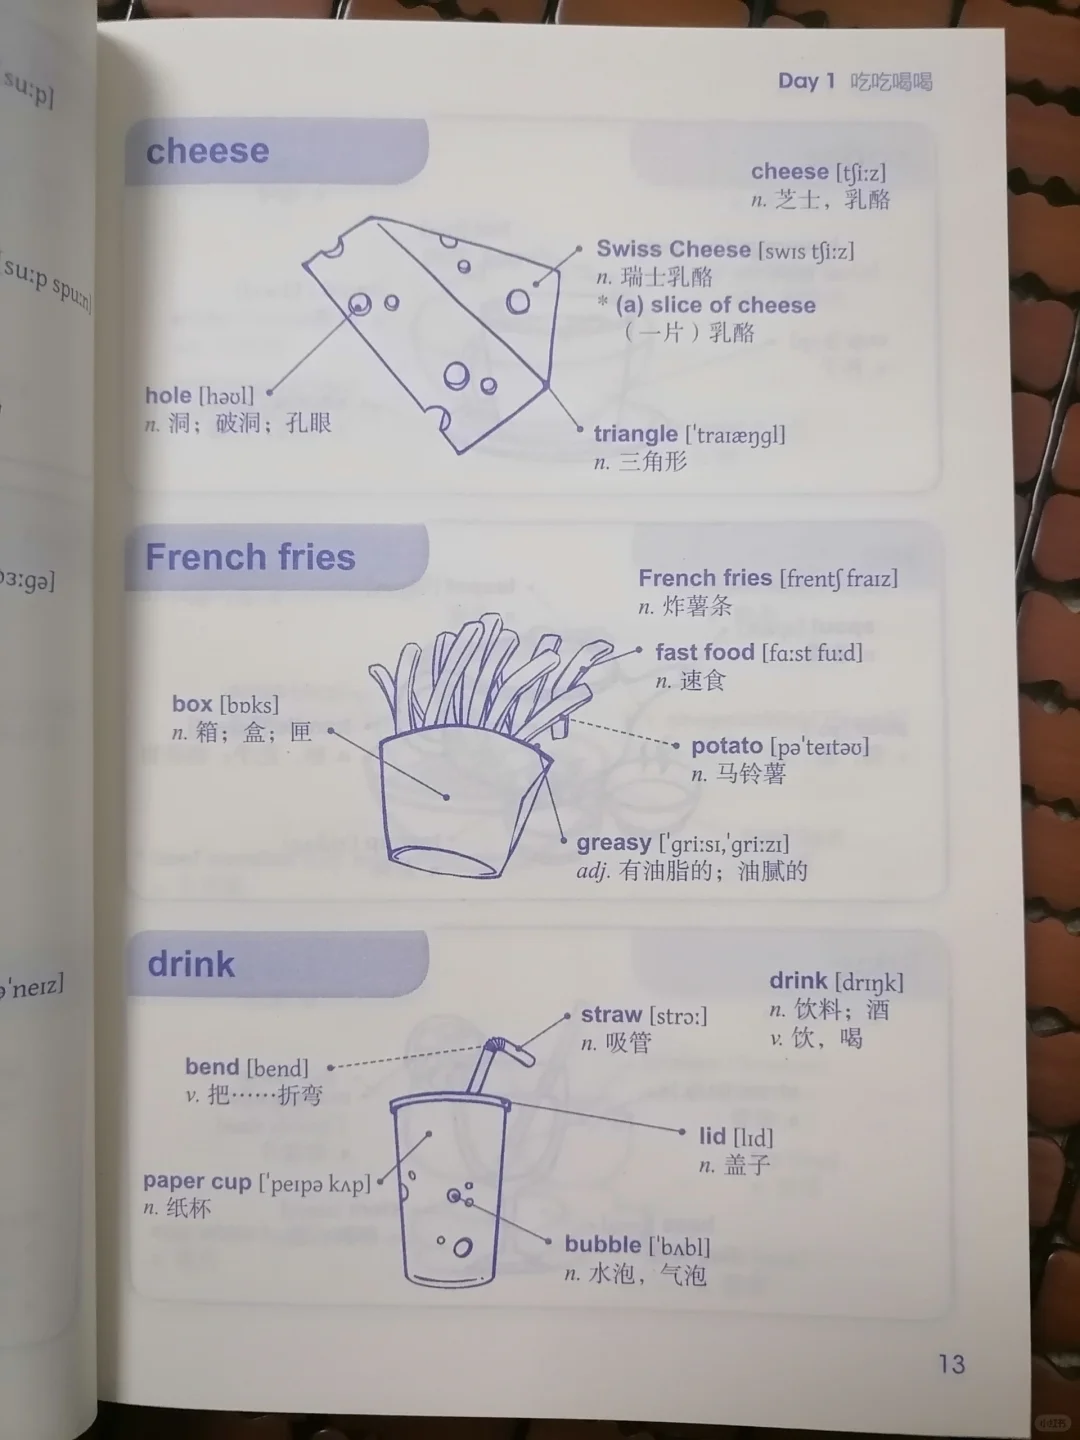 su:p]
[su:p spu:n]
ɜ:gə]
ə'neɪz]
Day 1 吃吃喝喝
cheese
cheese [tʃi:z]
n. 芝士，乳酪
Swiss Cheese [swɪs tʃi:z]
n. 瑞士乳酪
* (a) slice of cheese
（一片）乳酪
hole [həʊl]
n. 洞；破洞；孔眼
triangle ['traɪæŋgl]
n. 三角形
French fries
French fries [frentʃ fraɪz]
n. 炸薯条
fast food [fɑ:st fu:d]
n. 速食
box [bɒks]
n. 箱；盒；匣
potato [pə'teɪtəʊ]
n. 马铃薯
greasy ['gri:sɪ,'gri:zɪ]
adj. 有油脂的；油腻的
drink
drink [drɪŋk]
n. 饮料；酒
v. 饮，喝
straw [strɔ:]
n. 吸管
bend [bend]
v. 把……折弯
lid [lɪd]
n. 盖子
paper cup ['peɪpə kʌp]
n. 纸杯
bubble ['bʌbl]
n. 水泡，气泡
13
小红书